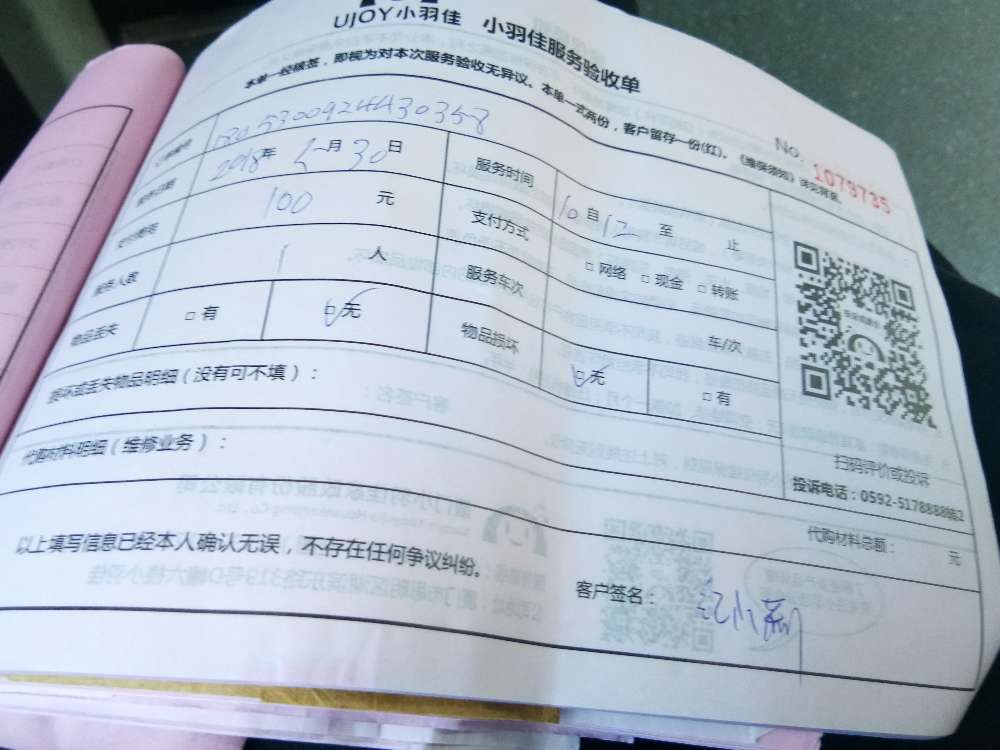 UJOY小羽佳 小羽佳服务验收单
本单一经核签，即视为对本次服务验收无异议。本单一式两份，客户留存一份(红)。《维保须知》详见背面。
No. 1079735
订单编号
服务日期 2018年 5月 30日 服务时间 10 自 12 至 止
支付费用 100 元 支付方式 □ 网络 □ 现金 □ 转账
服务人数 1 人 服务车次 车/次
物品丢失 □ 有 □ 无 物品损坏 □ 无 □ 有
扫码评价或投诉
损坏或丢失物品明细（没有可不填）：
投诉电话：0592-5178888转2
代购材料明细（维修业务）：
代购材料总额： 元
以上填写信息已经本人确认无误，不存在任何争议纠纷。
客户签名：